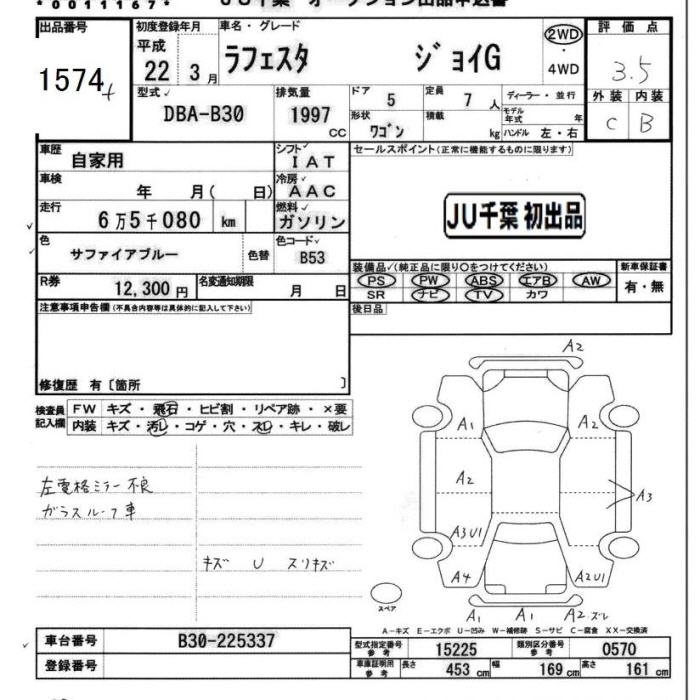 *0011167* JU千葉 オークション出品申込書
出品番号 初度登録年月 車名・グレード 2WD・4WD 評価点
1574 平成22 3月 ラフェスタ ジョイG 3.5
型式✓ 排気量 ドア 5 定員 7人 ディーラー・並行 外装 内装
DBA-B30 1997cc 形状 ワゴン 積載 kg モデル年式 年 ハンドル 左・右 C B
車歴 自家用 シフト✓ IAT セールスポイント(正常に機能するものに限ります)
車検 年 月( 日) 冷房✓ AAC
走行 6万5千080 km 燃料✓ ガソリン JU千葉 初出品
色 サファイアブルー 色替 色コード✓ B53
装備品✓(純正品に限り○をつけてください) 新車保証書
R券 12,300円 名変通知期限 月 日 PS PW ABS エアB AW 有・無
SR ナビ TV カワ
注意事項申告欄(不具合内容等は具体的に記入して下さい) 後日品
修復歴 有〔箇所 〕
検査員記入欄 FW キズ・飛石・ヒビ割・リペア跡・×要
内装 キズ・汚レ・コゲ・穴・スレ・キレ・破レ
左電格ミラー不良
ガラスルーフ車
キズ U スリキズ
A2
A1 A1
A2 A3
A3U1
A4 A2U1
スペア A1 A1 A2 ズレ
A-キズ E-エクボ U-凹み W-補修跡 S-サビ C-腐食 XX-交換済
車台番号 B30-225337 型式指定番号 参考 15225 類別区分番号 参考 0570
登録番号 車庫証明用 参考 長さ 453cm 幅 169cm 高さ 161cm